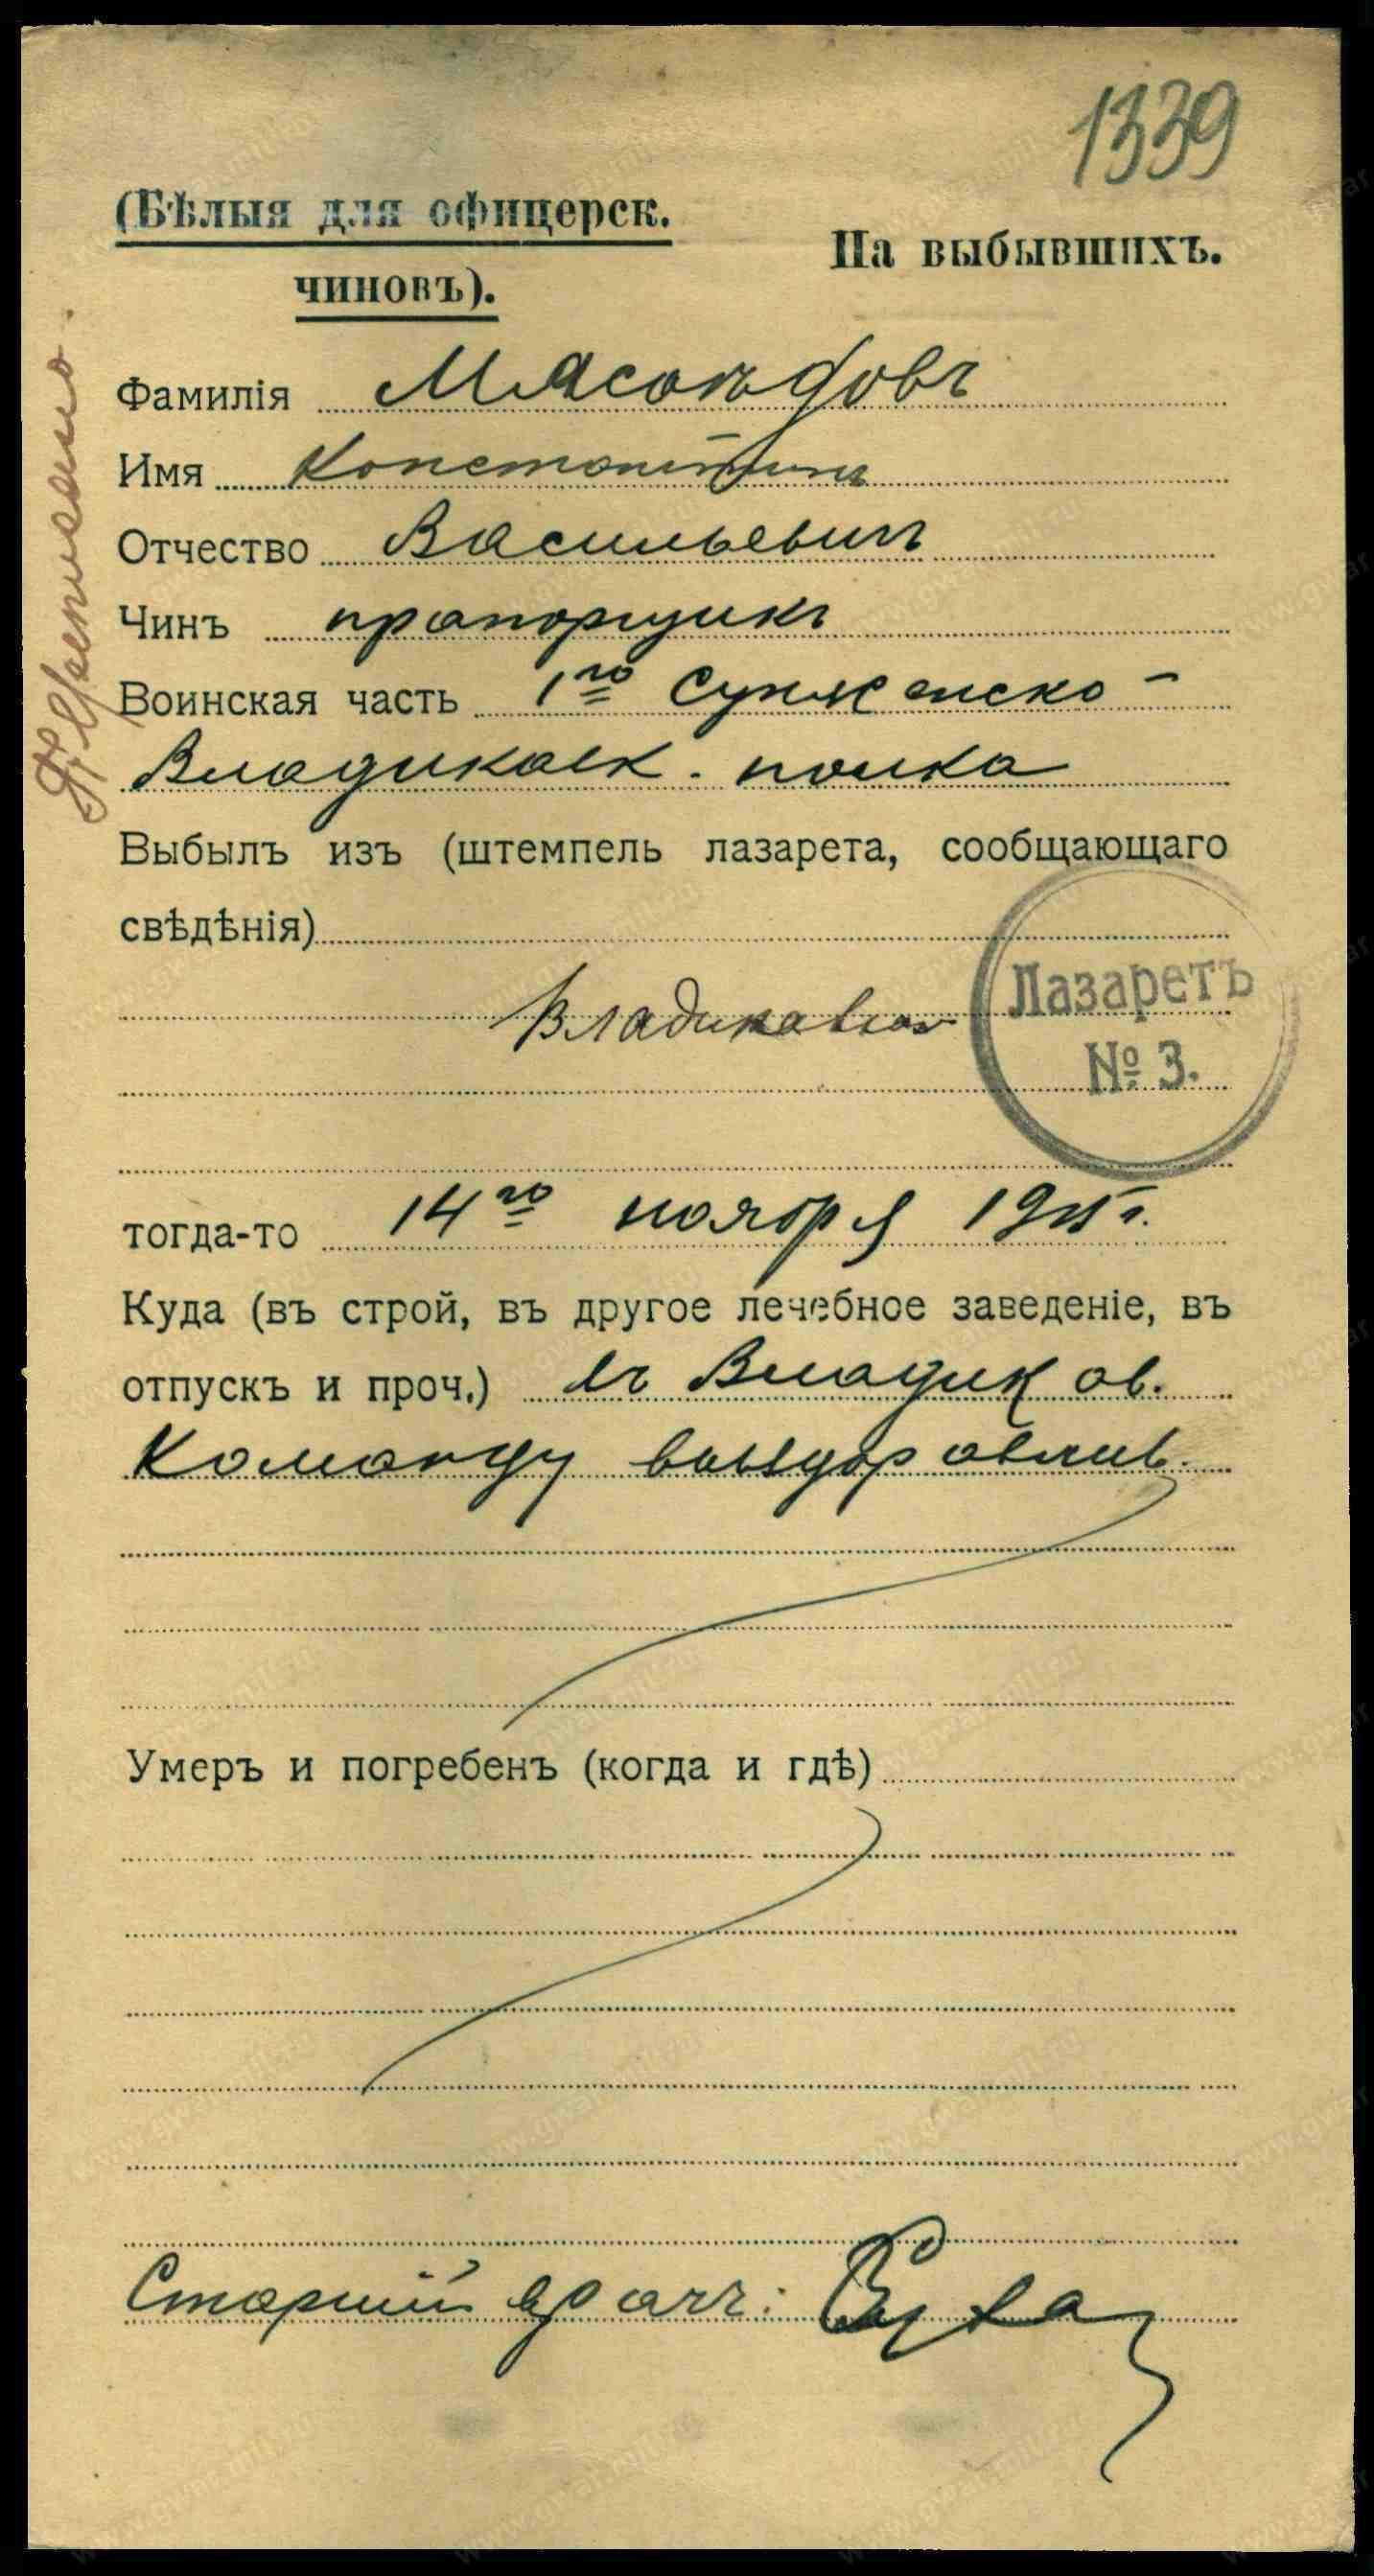 1339
(Бѣлыя для офицерск.
чиновъ).
На выбывшихъ.
Фамилія Мясоѣдовъ
Имя Константинъ
Отчество Васильевичъ
Чинъ прапорщикъ
Воинская часть 1го Сунженско-
Владикавк. полка
Выбылъ изъ (штемпель лазарета, сообщающаго
свѣдѣнія)
Владикавказ
Лазаретъ
№ 3.
тогда-то 14го ноября 1915 г.
Куда (въ строй, въ другое лечебное заведеніе, въ
отпускъ и проч.) въ Владиков.
Команду выздоровлив.
Умеръ и погребенъ (когда и гдѣ)
Старшій врачъ: